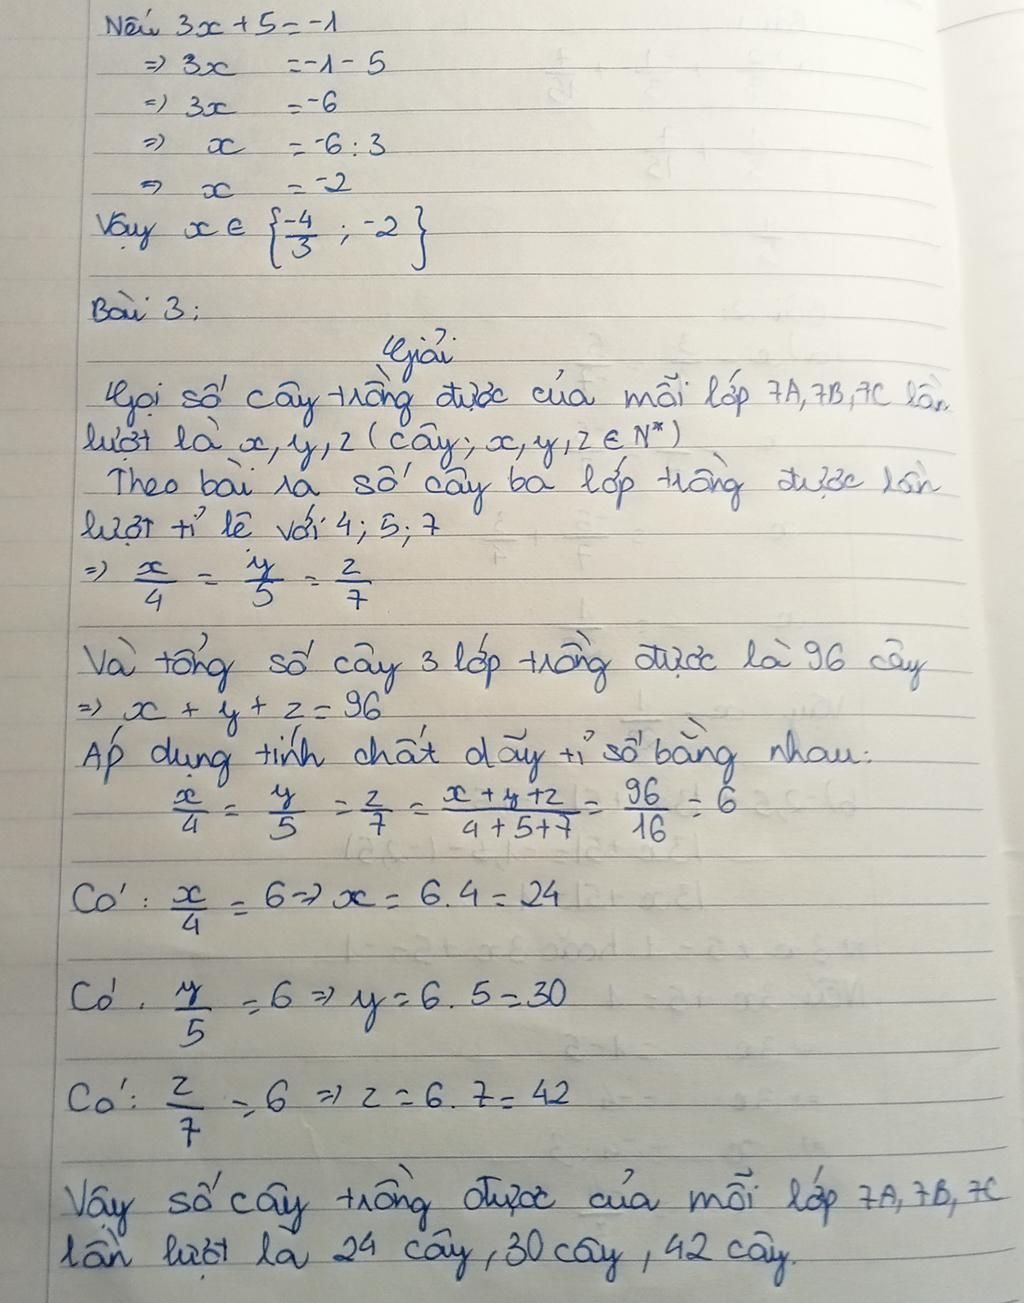 Nếu 3x + 5 = -1
=> 3x = -1 - 5
=> 3x = -6
=> x = -6 : 3
=> x = -2
Vậy x ∈ {-4/3 ; -2}
Bài 3:
Giải
Gọi số cây trồng được của mỗi lớp 7A, 7B, 7C lần
lượt là x, y, z (cây; x, y, z ∈ N*)
Theo bài ra số cây ba lớp trồng được lần
lượt tỉ lệ với 4; 5; 7
=> x/4 = y/5 = z/7
Và tổng số cây 3 lớp trồng được là 96 cây
=> x + y + z = 96
Áp dụng tính chất dãy tỉ số bằng nhau:
x/4 = y/5 = z/7 = (x + y + z)/(4 + 5 + 7) = 96/16 = 6
Có: x/4 = 6 => x = 6.4 = 24
Có: y/5 = 6 => y = 6.5 = 30
Có: z/7 = 6 => z = 6.7 = 42
Vậy số cây trồng được của mỗi lớp 7A, 7B, 7C
lần lượt là 24 cây, 30 cây, 42 cây.